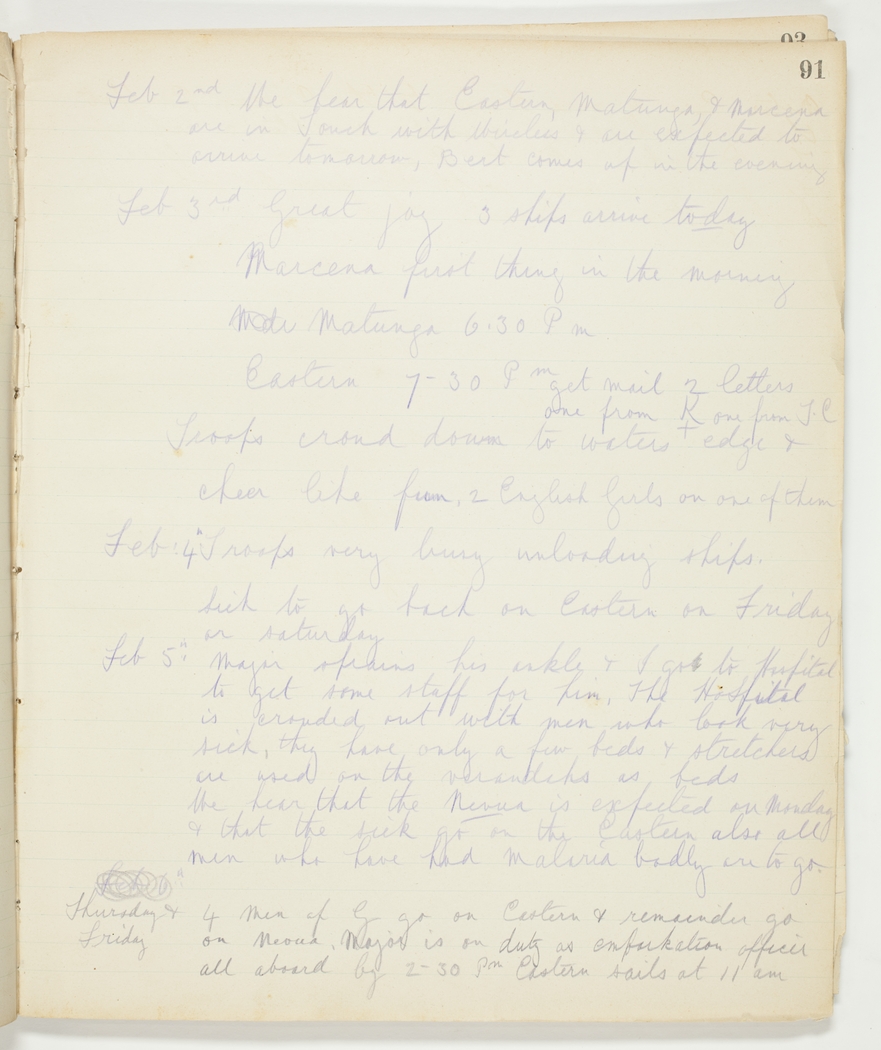 93
91
Feb 2nd We hear that Eastern, Matunga, & Marcena
are in Touch with Wireless & are expected to
arrive tomorrow, Bert comes up in the evening
Feb 3rd Great joy 3 ships arrive today
Marcena first thing in the morning
Matunga 6.30 Pm
Eastern 7-30 Pm get mail 2 letters
one from K one from J.C
Troops crowd down to waters edge &
cheer like fun, 2 English Girls on one of them
Feb. 4" Troops very busy unloading ships.
Sick to go back on Eastern on Friday
or saturday
Feb 5": Major sprains his ankle & I go to Hospital
to get some staff for him, The Hospital
is crowded out with men who look very
sick, they have only a few beds & stretchers
are used on the verandahs as beds
We hear that the Navua is expected on Monday
& that the sick go on the Eastern also all
men who have had Malaria badly are to go.
Thursday &
Friday
4 Men of G go on Eastern & remainder go
on Navua. Major is on duty as embarkation officer
all aboard by 2-30 Pm Eastern sails at 11 am